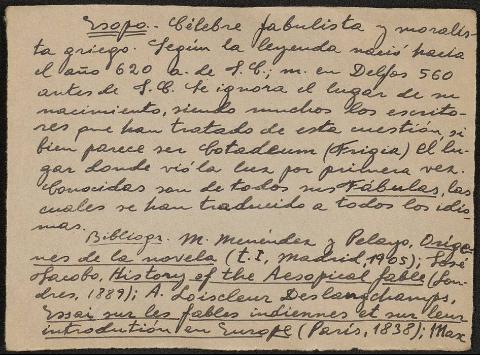 Esopo.- Célebre fabulista y moralis-
ta griego. Según la leyenda nació hacia
el año 620 a. de J.C.; m. en Delfos 560
antes de J.C. Se ignora el lugar de su
nacimiento, siendo muchos los escrito-
res que han tratado de esta cuestión, si
bien parece ser Cotadeum (Frigia) el lu-
gar donde vió la luz por primera vez.
Conocidas son de todos sus Fábulas, las
cuales se han traducido a todos los idio-
mas.
Bibliogr. M. Menéndez y Pelayo, Oríge-
nes de la novela (t. I, Madrid, 1905); José
Jacobo, History of the Aesopical fable (Lon-
dres, 1889); A. Loiseleur Deslongchamps,
Essai sur les fables indiennes et sur leur
introdutión en Europe (París, 1838); Max